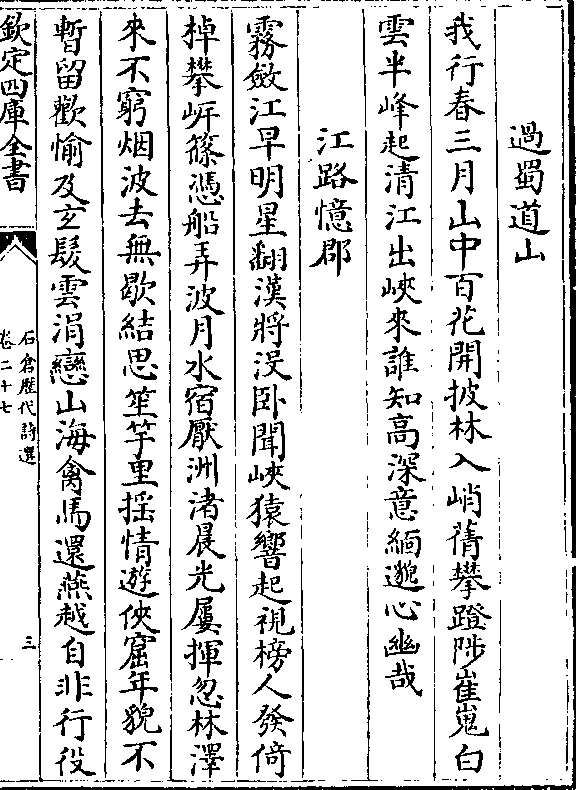 過蜀道山
我行春三月山中百花開披林入峭蒨攀蹬陟崔嵬白
雲半峰起清江出峽來誰知高深意緬邈心幽哉
江路憶郡
霧斂江早明星翻漢將没卧聞峽猿響起視榜人發倚
棹攀㟁篠憑船弄波月水宿厭洲渚晨光屢揮忽林澤
來不窮烟波去無歇結思笙竽里揺情遊俠窟年貌不
暫留歡愉及玄髮雲涓戀山海禽馬還燕越自非行役
欽定四庫全書
石倉歴代詩選
卷二十七
三